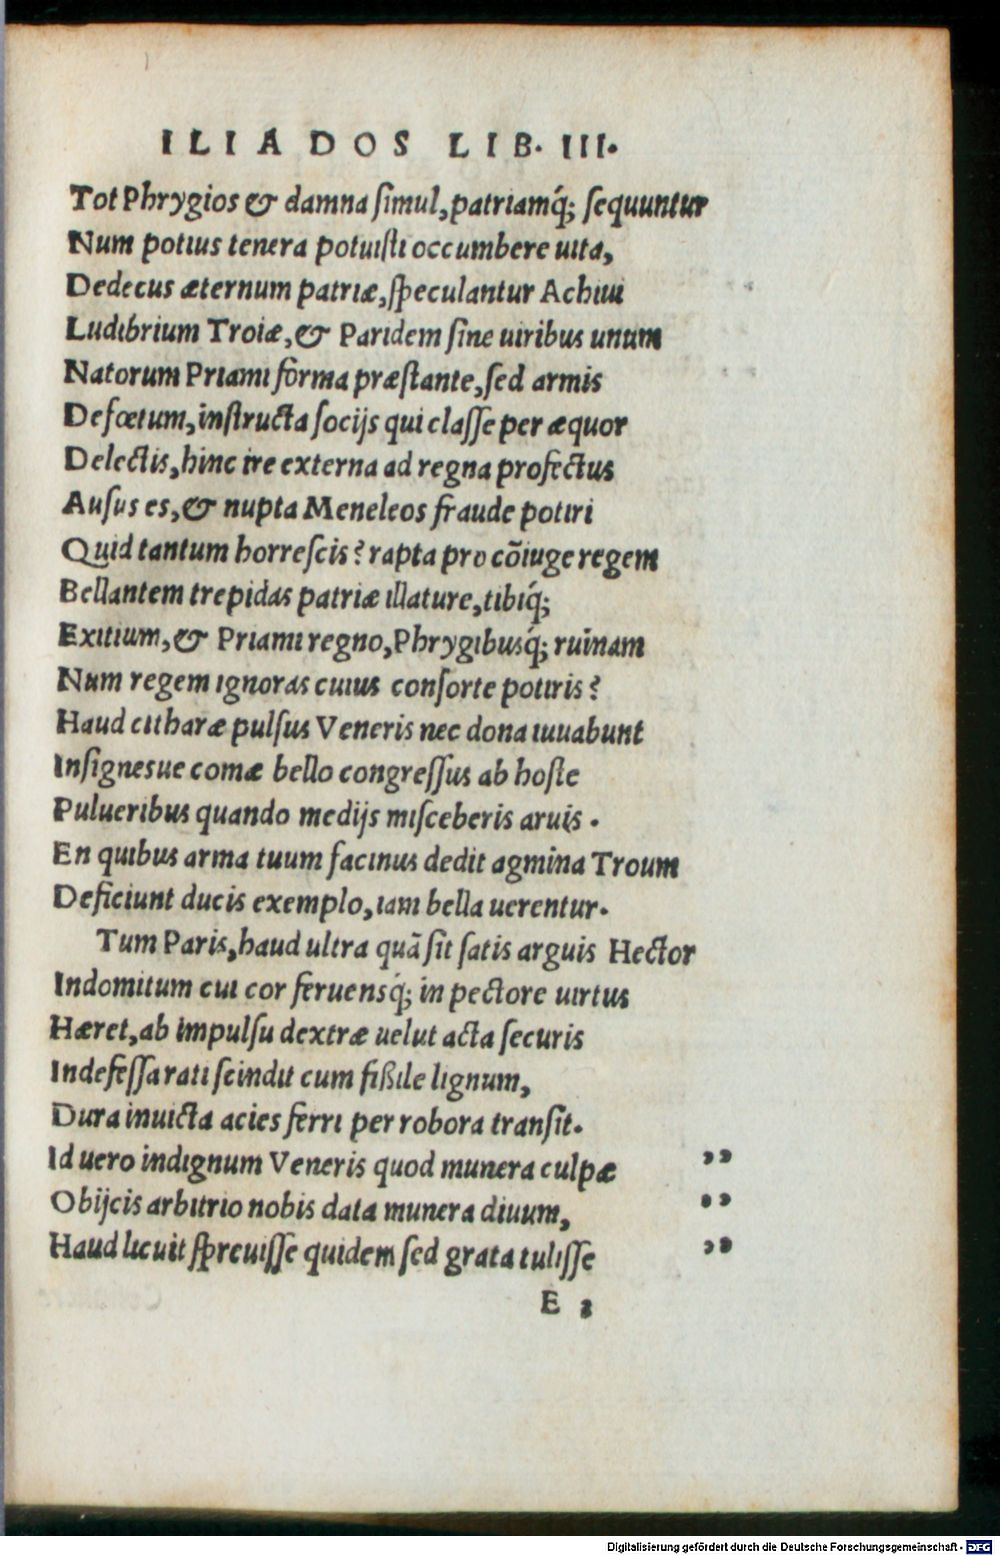 ILIADOS LIB. III.
Tot Phrygios & damna simul, patriamq́; sequuntur
Num potius tenera potuisti occumbere uita,
Dedecus æternum patriæ, speculantur Achiui
Ludibrium Troiæ, & Paridem sine uiribus unum
Natorum Priami forma præstante, sed armis
Defœtum, instructa socijs qui classe per æquor
Delectis, hinc ire externa ad regna profectus
Ausus es, & nupta Meneleos fraude potiri
Quid tantum horrescis? rapta pro cōiuge regem
Bellantem trepidas patriæ illature, tibiq́;
Exitium, & Priami regno, Phrygibusq́; ruinam
Num regem ignoras cuius consorte potiris?
Haud citharæ pulsus Veneris nec dona iuuabunt
Insignesue comæ bello congressus ab hoste
Pulueribus quando medijs misceberis aruis.
En quibus arma tuum facinus dedit agmina Troum
Deficiunt ducis exemplo, iam bella uerentur.
Tum Paris, haud ultra quā sit satis arguis Hector
Indomitum cui cor feruensq́; in pectore uirtus
Hæret, ab impulsu dextræ uelut acta securis
Indefessa rati scindit cum fißile lignum,
Dura inuicta acies ferri per robora transit.
Id uero indignum Veneris quod munera culpæ ”
Obijcis arbitrio nobis data munera diuum, ”
Haud licuit spreuisse quidem sed grata tulisse ”
E 2
Digitalisierung gefördert durch die Deutsche Forschungsgemeinschaft - DFG